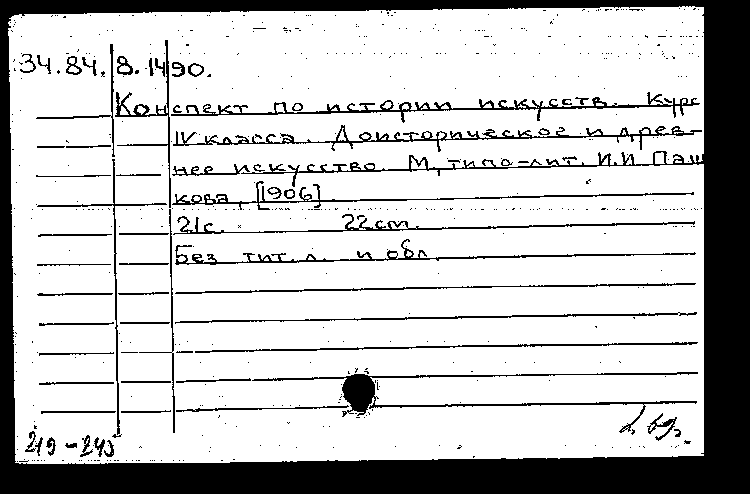 34.84.8.1490.
Конспект по истории искусств. Курс
IV класса. Доисторическое и древ-
нее искусство. М, типо-лит. И.И Паш
кова, [1906].
21с. 22cm.
Без тит. л. и обл.
219-245